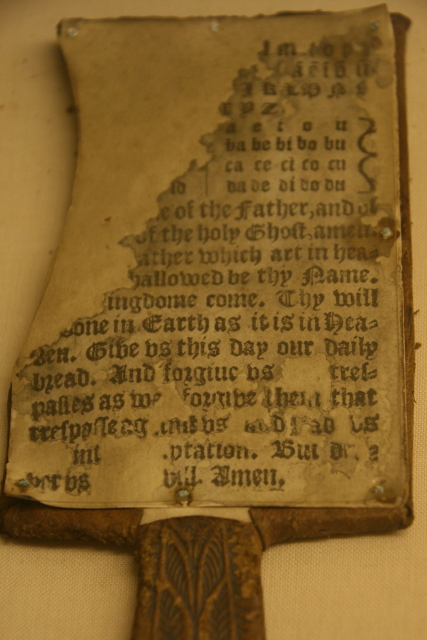 a e i o u
ba be bi bo bu
ca ce ci co cu
da de di do du
e of the Father, and of
of the holy Ghost, amen.
ather which art in hea=
hallowed be thy Name.
ingdome come. Thy will
done in Earth as it is in Hea=
ven. Give vs this day our daily
bread. And forgiue vs tres=
passes as we forgive them that
trespasse ag inst vs And lead vs
int ptation. But de
ver vs vill. Amen.